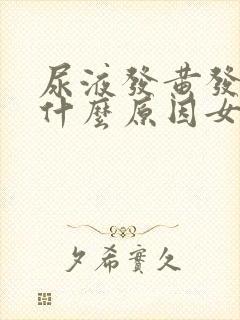 尿液發黃發
什麼原因女
夕希實久